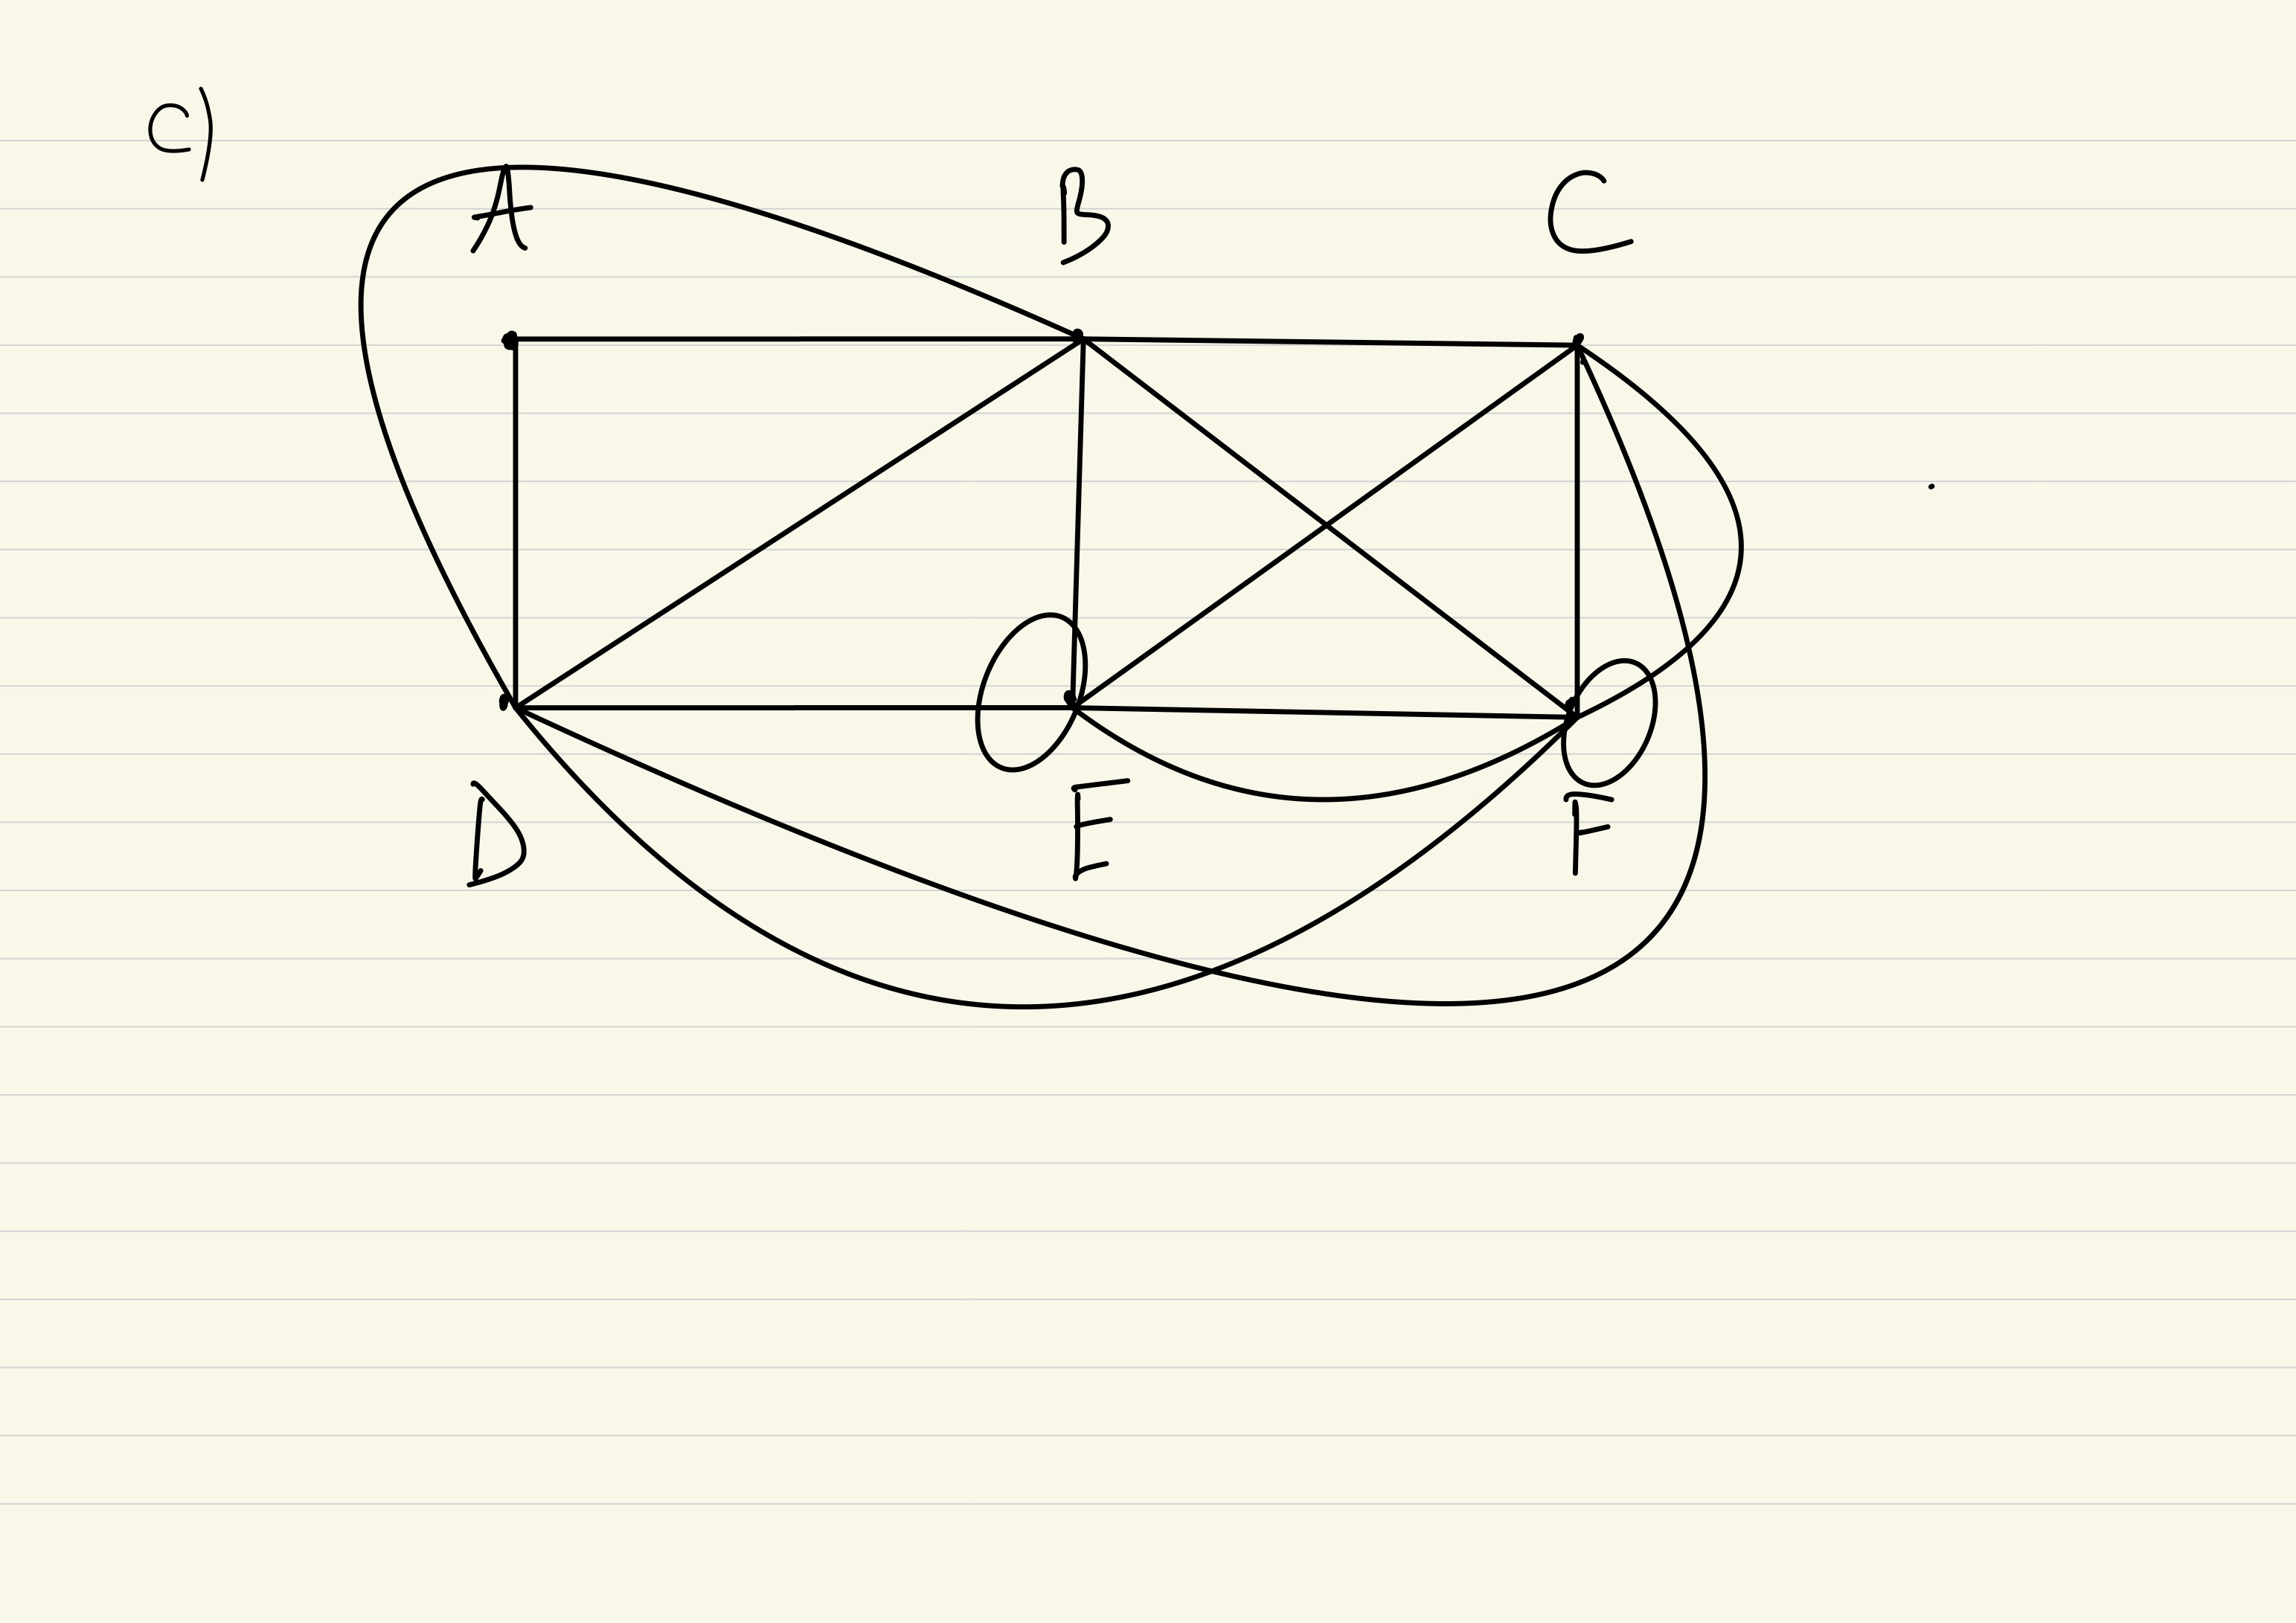 C)
A B C
D E F